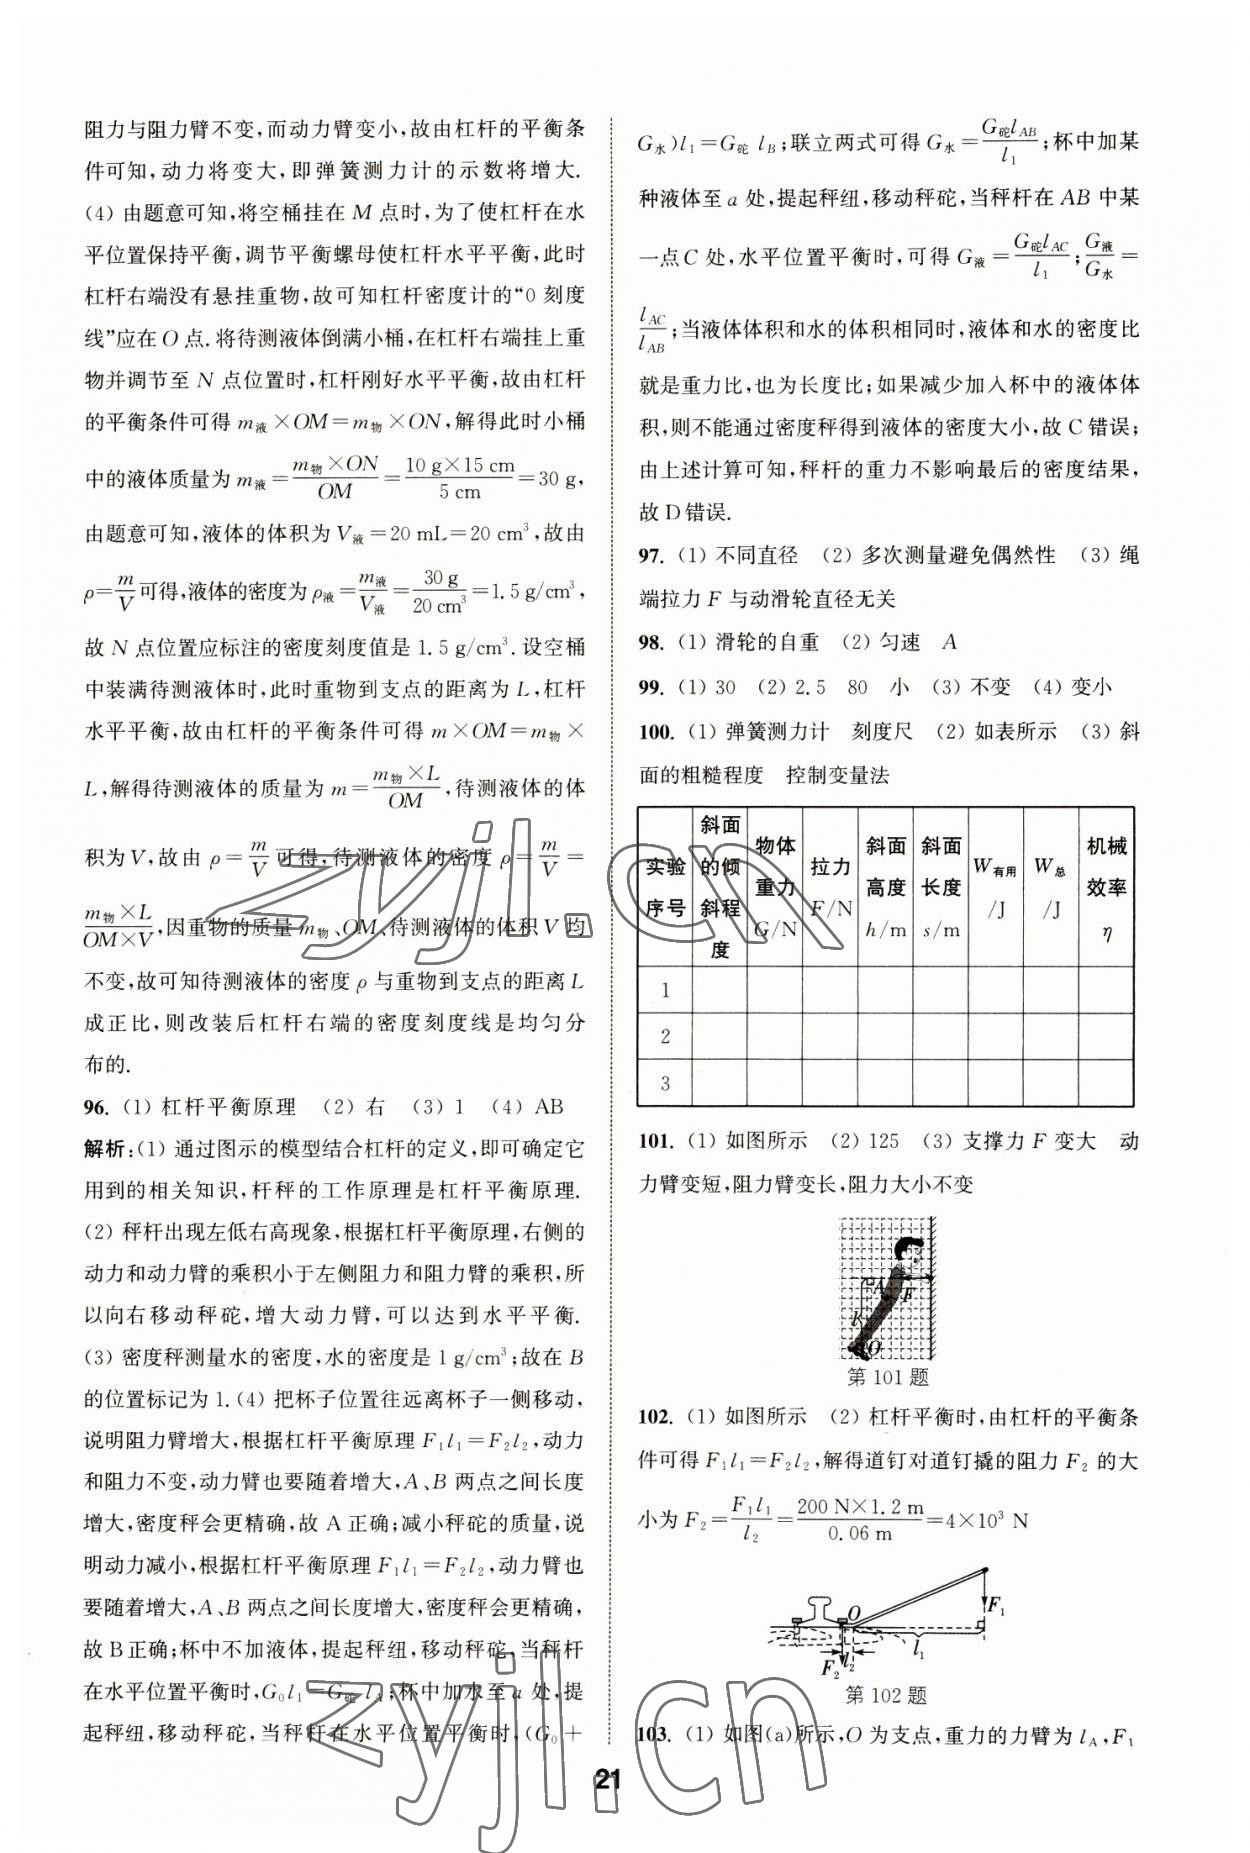 阻力与阻力臂不变,而动力臂变小,故由杠杆的平衡条
件可知,动力将变大,即弹簧测力计的示数将增大.
(4) 由题意可知,将空桶挂在 M 点时,为了使杠杆在水
平位置保持平衡,调节平衡螺母使杠杆水平平衡,此时
杠杆右端没有悬挂重物,故可知杠杆密度计的“0 刻度
线”应在 O 点. 将待测液体倒满小桶,在杠杆右端挂上重
物并调节至 N 点位置时,杠杆刚好水平平衡,故由杠杆
的平衡条件可得 m液×OM=m物×ON,解得此时小桶
中的液体质量为 m液=m物×ON/OM=10 g×15 cm/5 cm=30 g,
由题意可知,液体的体积为 V液=20 mL=20 cm³,故由
ρ=m/V可得,液体的密度为 ρ液=m液/V液=30 g/20 cm³=1.5 g/cm³,
故 N 点位置应标注的密度刻度值是 1.5 g/cm³. 设空桶
中装满待测液体时,此时重物到支点的距离为 L,杠杆
水平平衡,故由杠杆的平衡条件可得 m×OM=m物×
L,解得待测液体的质量为 m=m物×L/OM,待测液体的体
积为 V,故由 ρ=m/V可得,待测液体的密度 ρ=m/V=
m物×L/OM×V,因重物的质量 m物、OM、待测液体的体积 V 均
不变,故可知待测液体的密度 ρ 与重物到支点的距离 L
成正比,则改装后杠杆右端的密度刻度线是均匀分
布的.
96. (1) 杠杆平衡原理 (2) 右 (3) 1 (4) AB
解析:(1) 通过图示的模型结合杠杆的定义,即可确定它
用到的相关知识,杆秤的工作原理是杠杆平衡原理.
(2) 秤杆出现左低右高现象,根据杠杆平衡原理,右侧的
动力和动力臂的乘积小于左侧阻力和阻力臂的乘积,所
以向右移动秤砣,增大动力臂,可以达到水平平衡.
(3) 密度秤测量水的密度,水的密度是 1 g/cm³;故在 B
的位置标记为 1. (4) 把杯子位置往远离杯子一侧移动,
说明阻力臂增大,根据杠杆平衡原理 F₁l₁=F₂l₂,动力
和阻力不变,动力臂也要随着增大,A、B 两点之间长度
增大,密度秤会更精确,故 A 正确;减小秤砣的质量,说
明动力减小,根据杠杆平衡原理 F₁l₁=F₂l₂,动力臂也
要随着增大,A、B 两点之间长度增大,密度秤会更精确,
故 B正确;杯中不加液体,提起秤纽,移动秤砣,当秤杆
在水平位置平衡时,G₀l₁=G砣 lA;杯中加水至 a 处,提
起秤纽,移动秤砣,当秤杆在水平位置平衡时,(G₀+
G水)l₁=G砣 lB;联立两式可得 G水=G砣lAB/l₁;杯中加某
种液体至 a 处,提起秤纽,移动秤砣,当秤杆在 AB 中某
一点 C 处,水平位置平衡时,可得 G液=G砣lAC/l₁;G液/G水=
lAC/lAB;当液体体积和水的体积相同时,液体和水的密度比
就是重力比,也为长度比;如果减少加入杯中的液体体
积,则不能通过密度秤得到液体的密度大小,故 C 错误;
由上述计算可知,秤杆的重力不影响最后的密度结果,
故 D 错误.
97. (1) 不同直径 (2) 多次测量避免偶然性 (3) 绳
端拉力 F 与动滑轮直径无关
98. (1) 滑轮的自重 (2) 匀速 A
99. (1) 30 (2) 2.5 80 小 (3) 不变 (4) 变小
100. (1) 弹簧测力计 刻度尺 (2) 如表所示 (3) 斜
面的粗糙程度 控制变量法
实验序号 斜面的倾斜程度 物体重力G/N 拉力F/N 斜面高度h/m 斜面长度s/m W有用/J W总/J 机械效率η
1
2
3
101. (1) 如图所示 (2) 125 (3) 支撑力 F 变大 动
力臂变短,阻力臂变长,阻力大小不变
A
F
O
第 101 题
102. (1) 如图所示 (2) 杠杆平衡时,由杠杆的平衡条
件可得 F₁l₁=F₂l₂,解得道钉对道钉撬的阻力 F₂ 的大
小为 F₂=F₁l₁/l₂=200 N×1.2 m/0.06 m=4×10³ N
O
F₁
l₁
F₂
l₂
第 102 题
103. (1) 如图(a)所示,O 为支点,重力的力臂为 lA,F₁
21
zyjl.cn
zyjl.cn